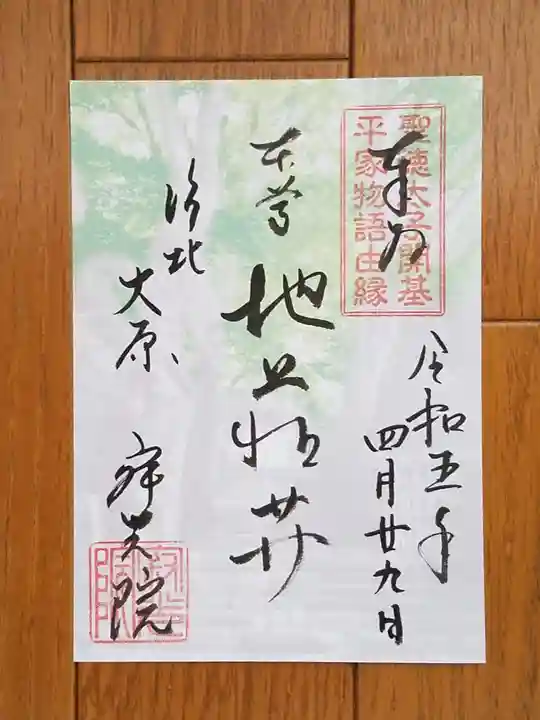 聖徳太子開基
平家物語由縁
奉拝
令和五年
四月廿九日
本尊
洛北
大原
寂光院